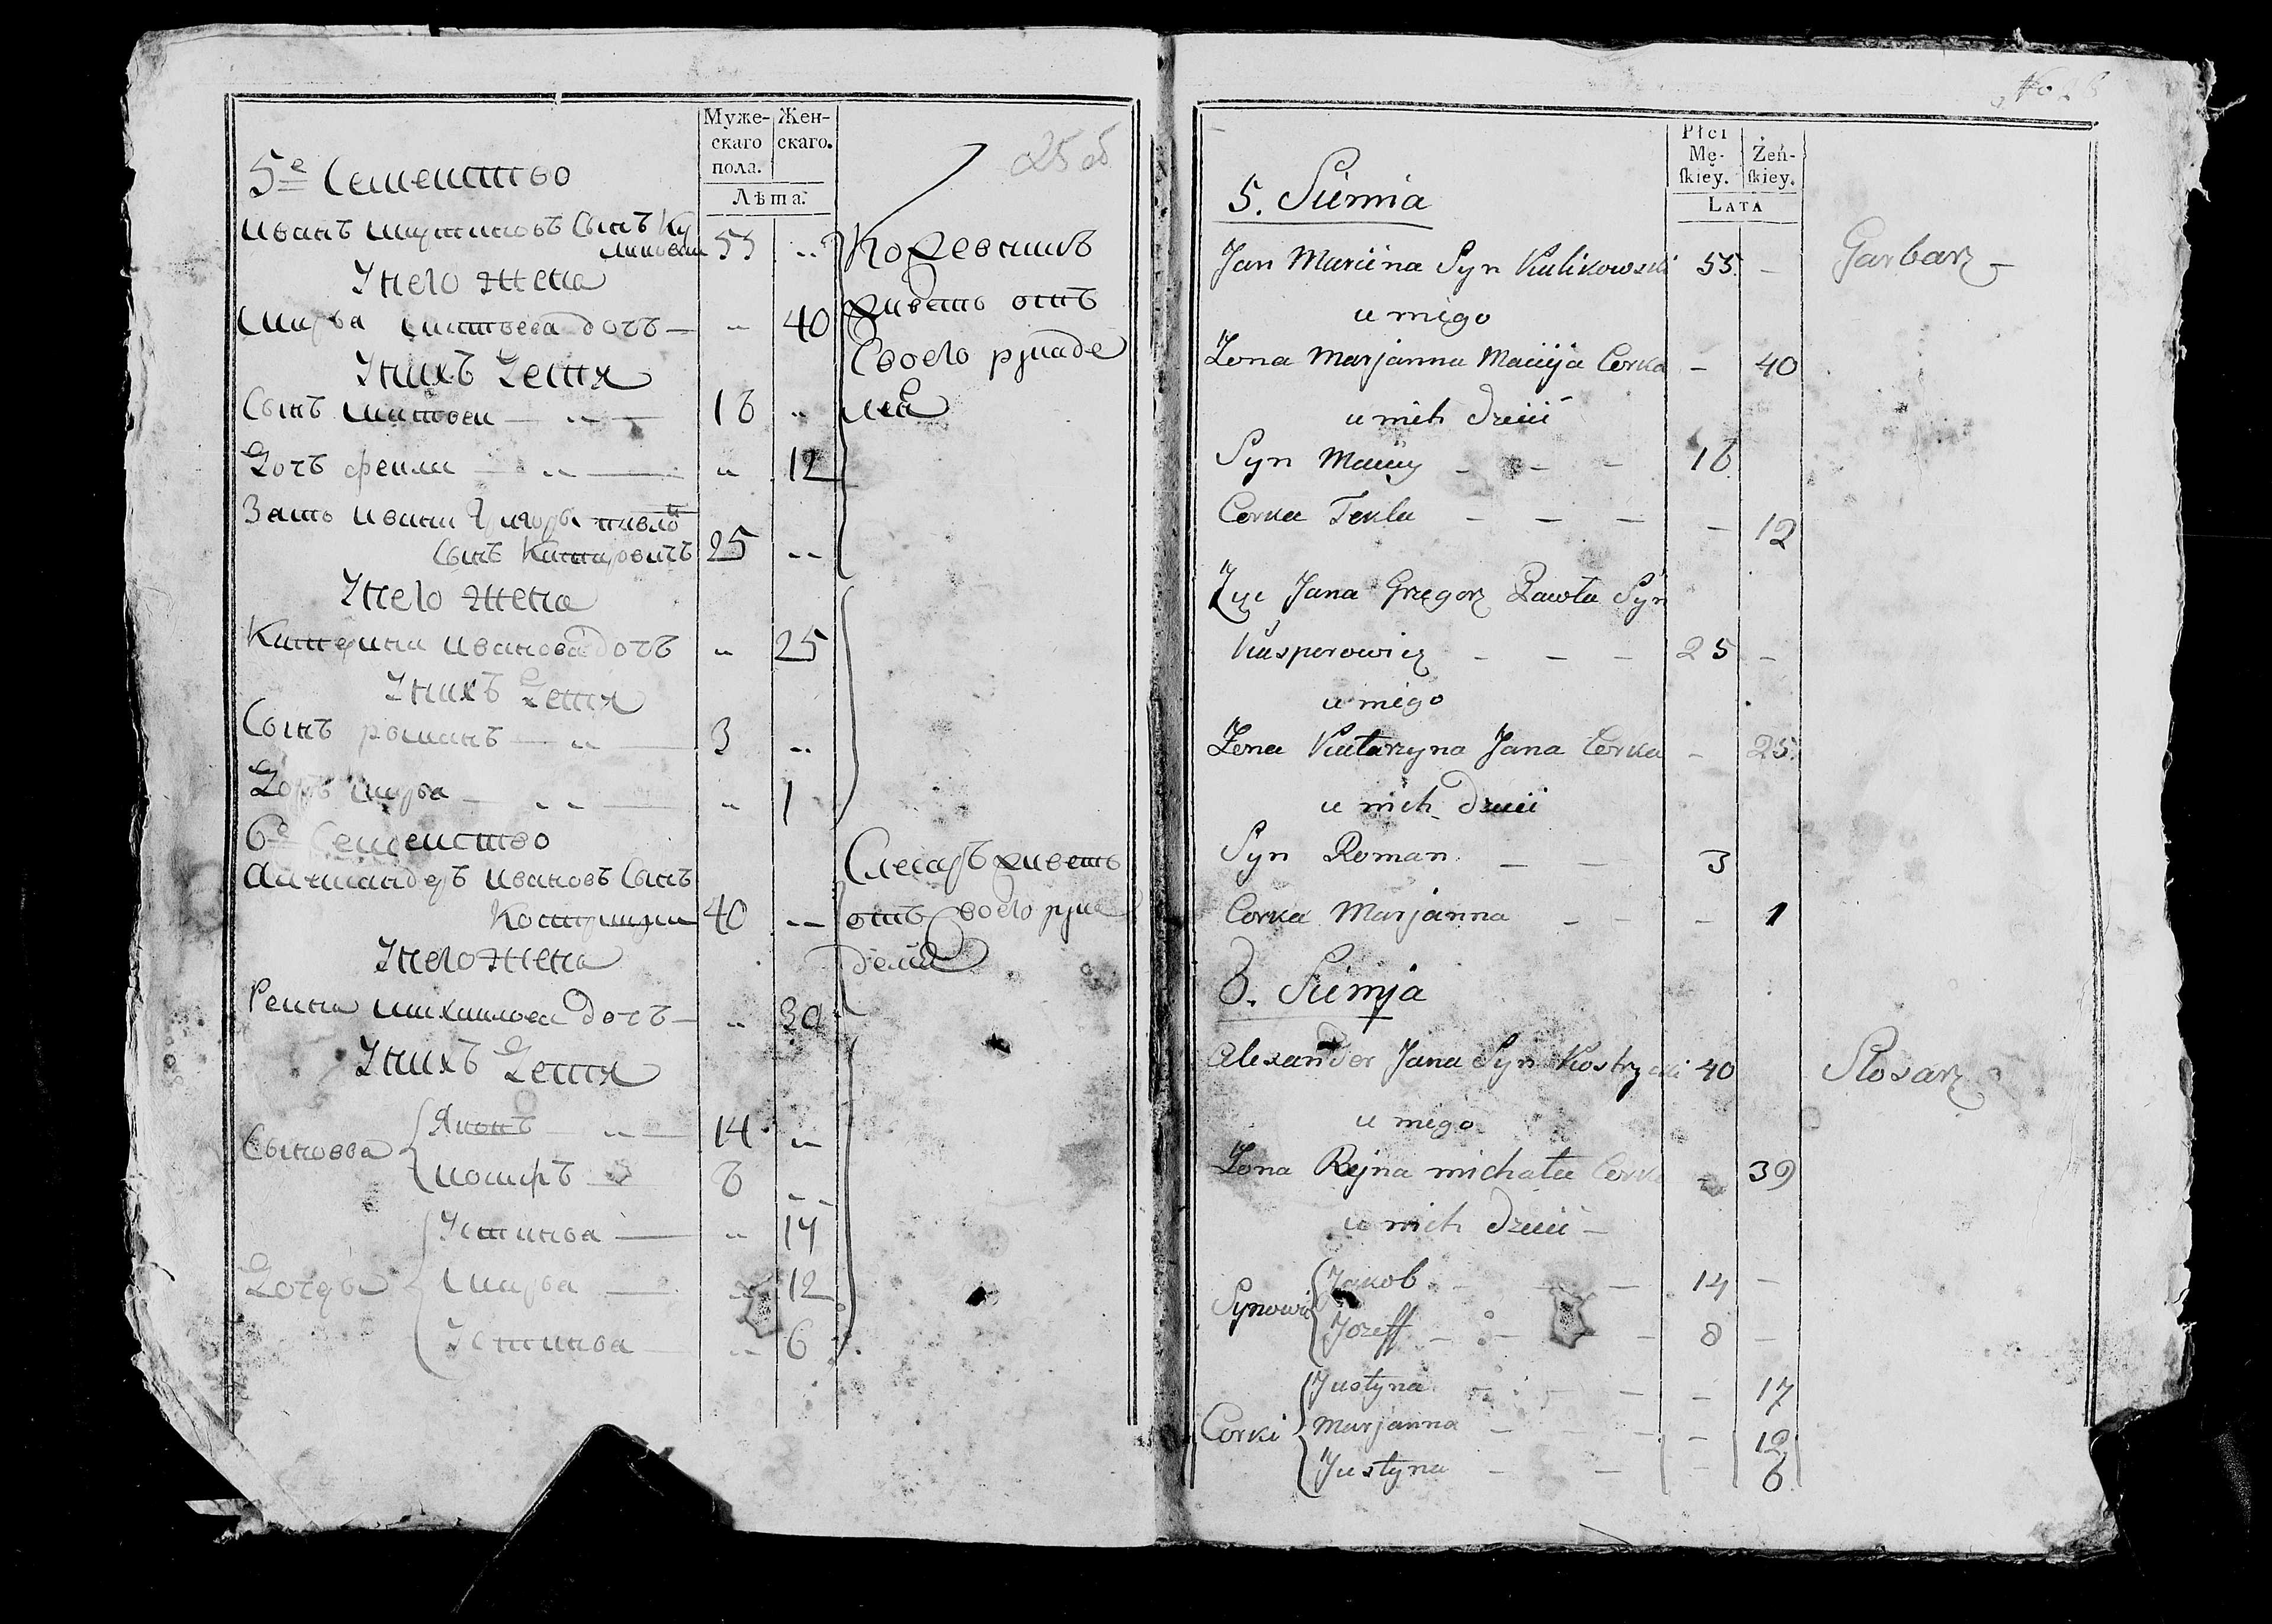 Муже-
скаго
пола.
Жен-
скаго.
Лѣта.
25 об
5е Семейство
Иванъ Мартиновъ Сынъ Ку
ликовски 55 „
Кожевникъ
У него жена
Марья Матвеева дочъ — „ 40
живетъ отъ
Своего рукаде
лия
У нихъ Детя
Сынъ Матвей — „ — 16 „
Дочъ Фекла — „ — „ 12
Зять Ивана Григоръ Павло
Сынъ Каспаровичъ 25 „
У него жена
Катерина Иванова дочъ „ 25
У нихъ Детя
Сынъ Романъ — „ — 3 „
Дочъ Марья — „ — „ 1
6е Семейство
Александеръ Ивановъ Сынъ
40 „
Слесаръ живетъ
отъ Своего рука
делия
У него жена
Регина Михайлова дочъ — „ 39
У нихъ Детя
Сыновья
Яковъ — „ — 14 „
Иосифъ — 8 „
Дочеры
Устинья — „ 17
Марья — „ 12
Устинья — „ 6
Płci
Mę-
ſkiey.
Żeń-
ſkiey.
LATA
5. Siemia
Jan Marcina Syn Kulikowski 55. –
Garbarz –
u niego
Zona Marjanna Macieja Corka – 40
u nich dzieci
Syn Maciey – – – 16
Corka Tekla – – – – 12
Zięć Jana Gregorz Pawła Syn
Kasperowicz – – – 25 –
u niego
Zona Katarzyna Jana Corka – 25.
u nich dzieci
Syn Roman – – 3
Corka Marjanna – – – 1
6. Siemja
Alexander Jana Syn Kostrycki 40
Slosarz
u niego
Zona Rejna michała Corka – 39
u nich dzieci –
Synowie
Jakob – – – 14 –
Jozeff – – – – 8 –
Corki
Justyna – – – – 17
Marjanna – – – – 12
Justyna – – – 6